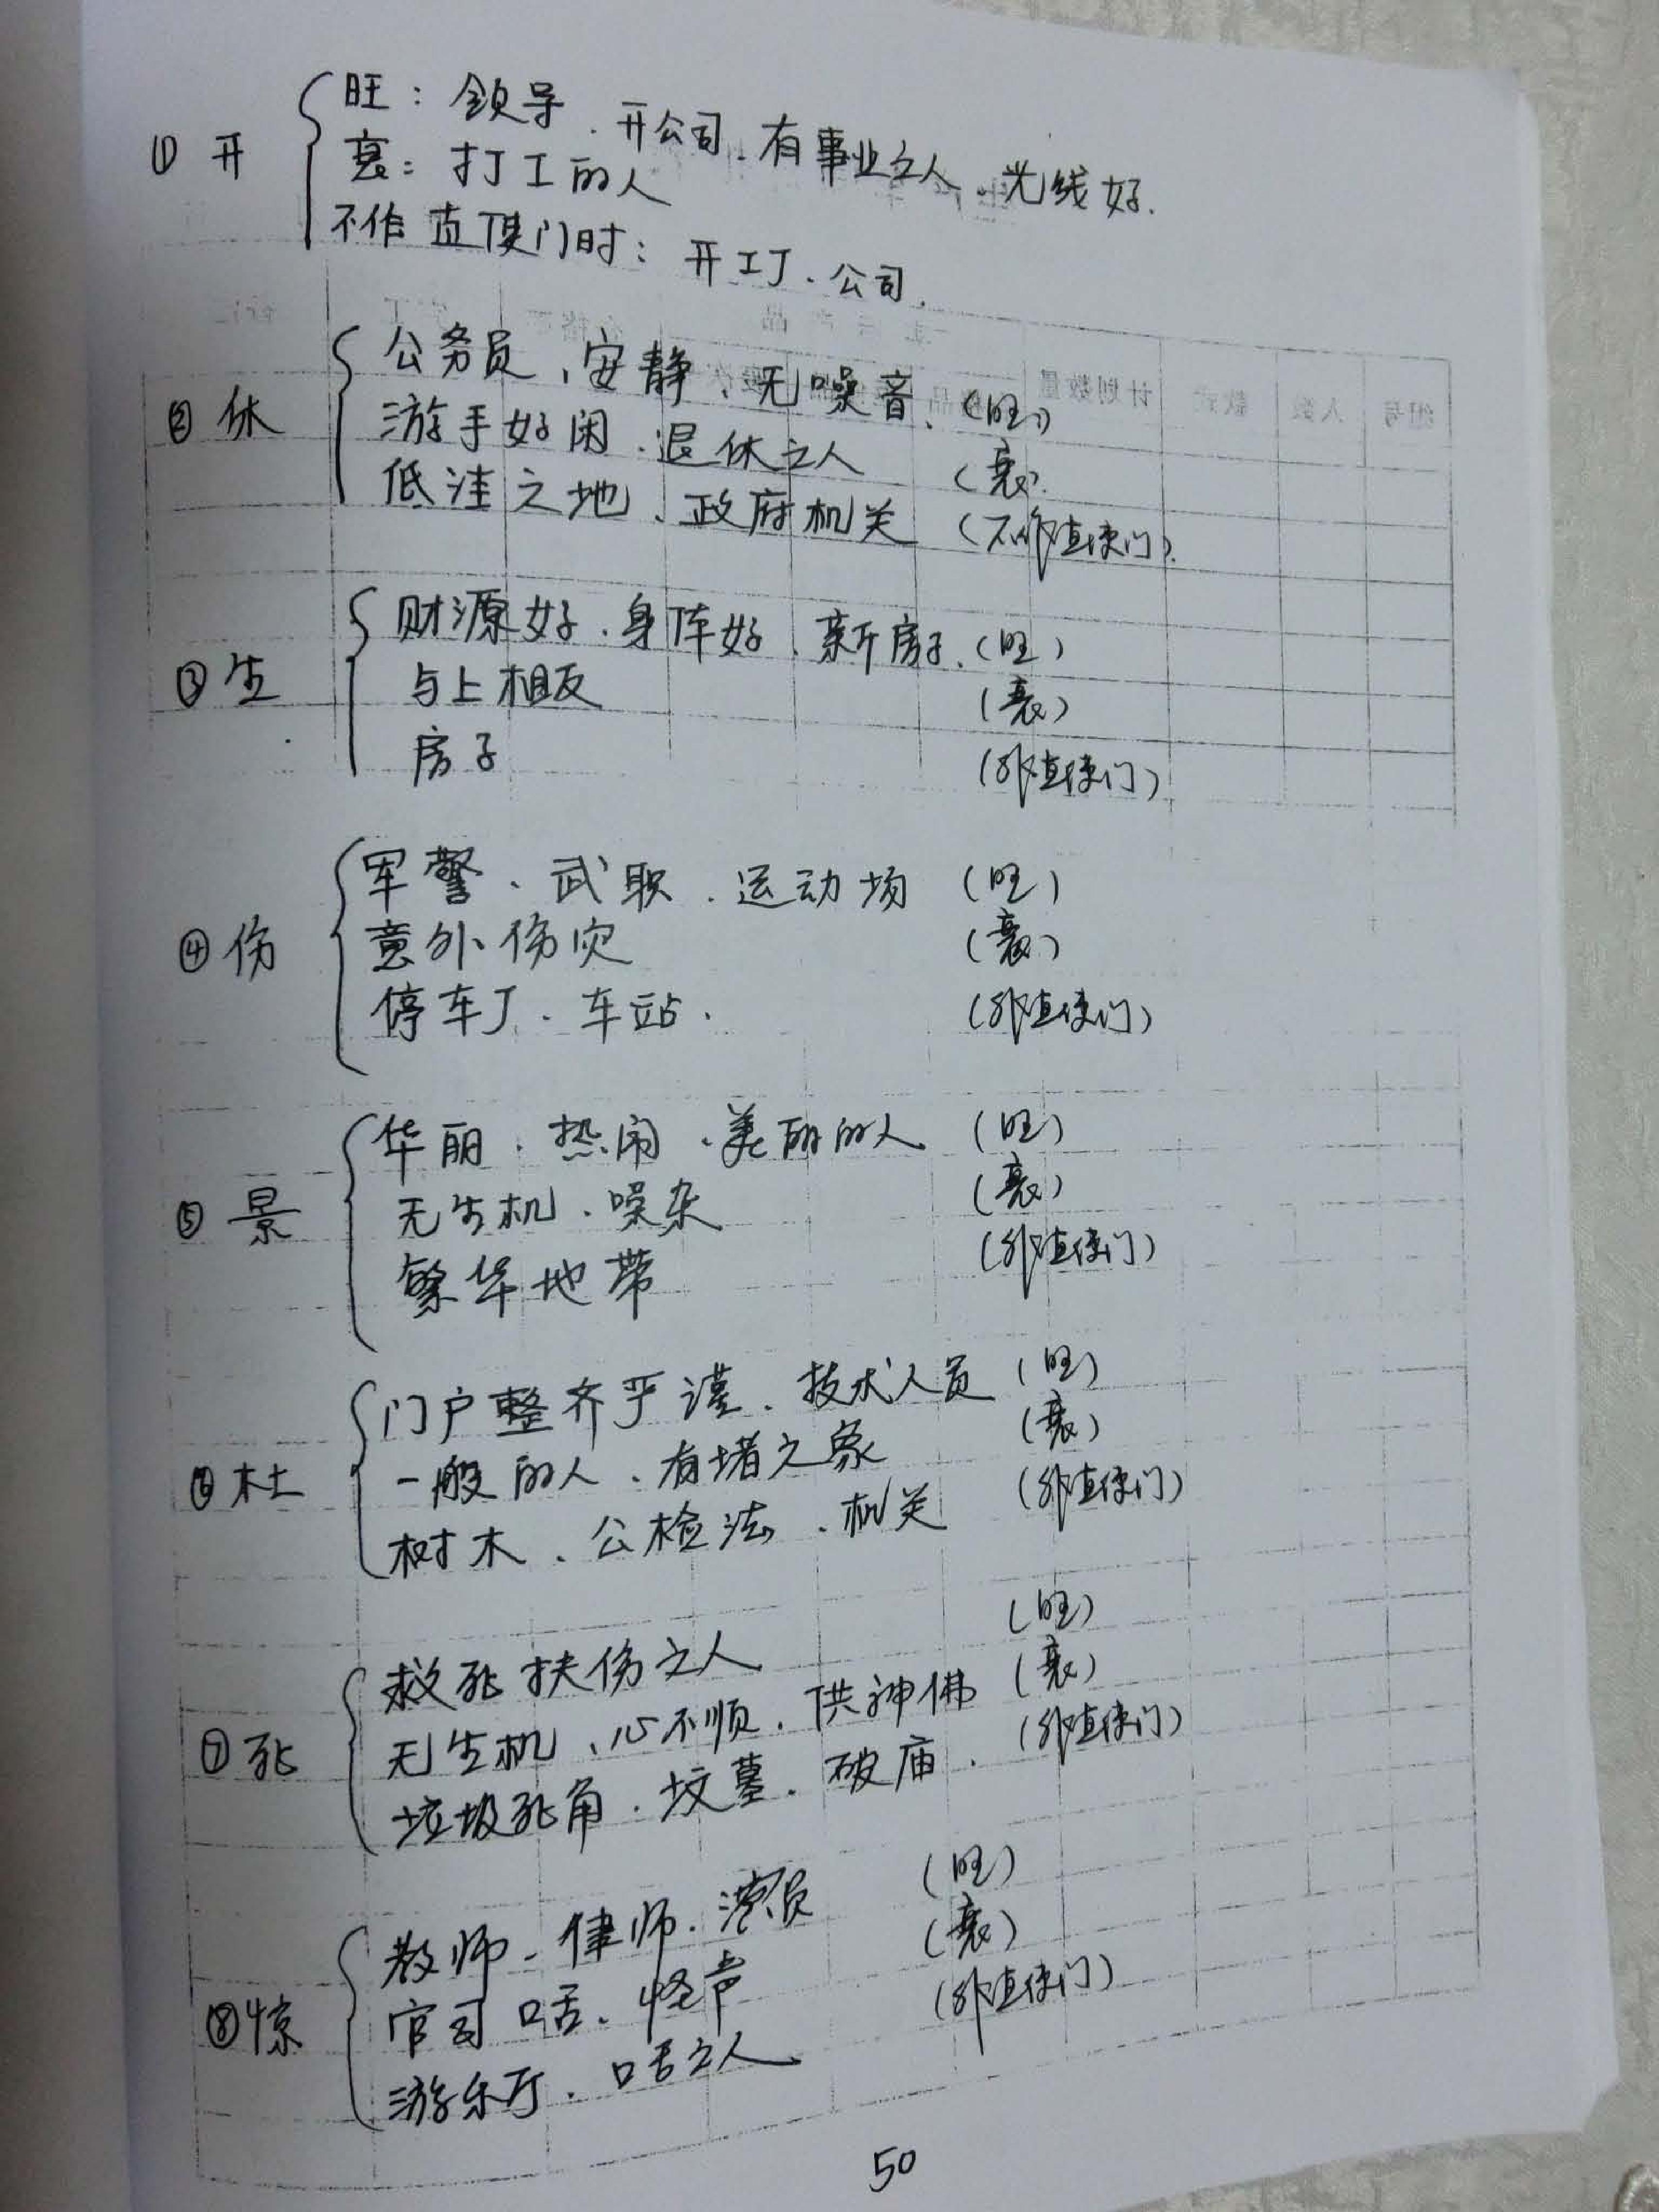 ① 开
旺：领导．开公司．有事业之人．光线好．
衰：打工的人
不作直使门时：开工厂．公司．
② 休
公务员、安静、无噪音．（旺）
游手好闲．退休之人（衰）．
低洼之地、政府机关（不作直使门）．
③ 生
财源好．身体好、新房子．（旺）
与上相反（衰）
房子（非直使门）
④ 伤
军警、武职．运动场（旺）
意外伤灾（衰）
停车厂．车站．（非直使门）
⑤ 景
华丽．热闹．美丽的人（旺）
无生机．噪杂（衰）
繁华地带（非直使门）
⑥ 杜
门户整齐严谨．技术人员（旺）
一般的人．有堵之象（衰）
树木．公检法．机关（非直使门）
⑦ 死
救死扶伤之人（旺）
无生机、心不顺．供神佛（衰）
垃圾死角．坟墓．破庙．（非直使门）
⑧ 惊
教师．律师．演员（旺）
官司口舌．怪声（衰）
游乐厅．口舌之人（非直使门）
50